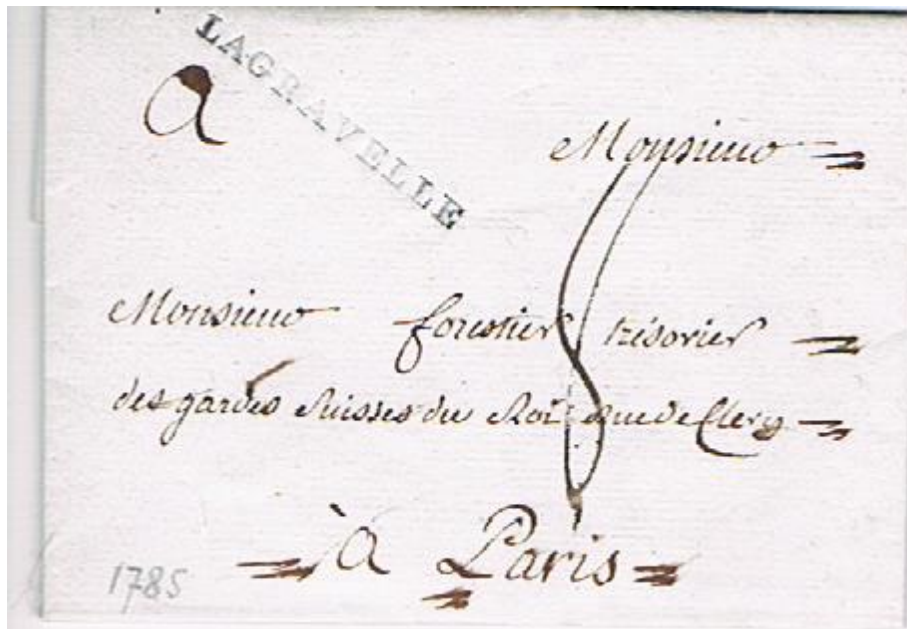 LAGRAVELLE
a Monsieur
8
Monsieur forestier trésorier
des gardes Suisses du Roi Rue de Clery
à Paris
1785